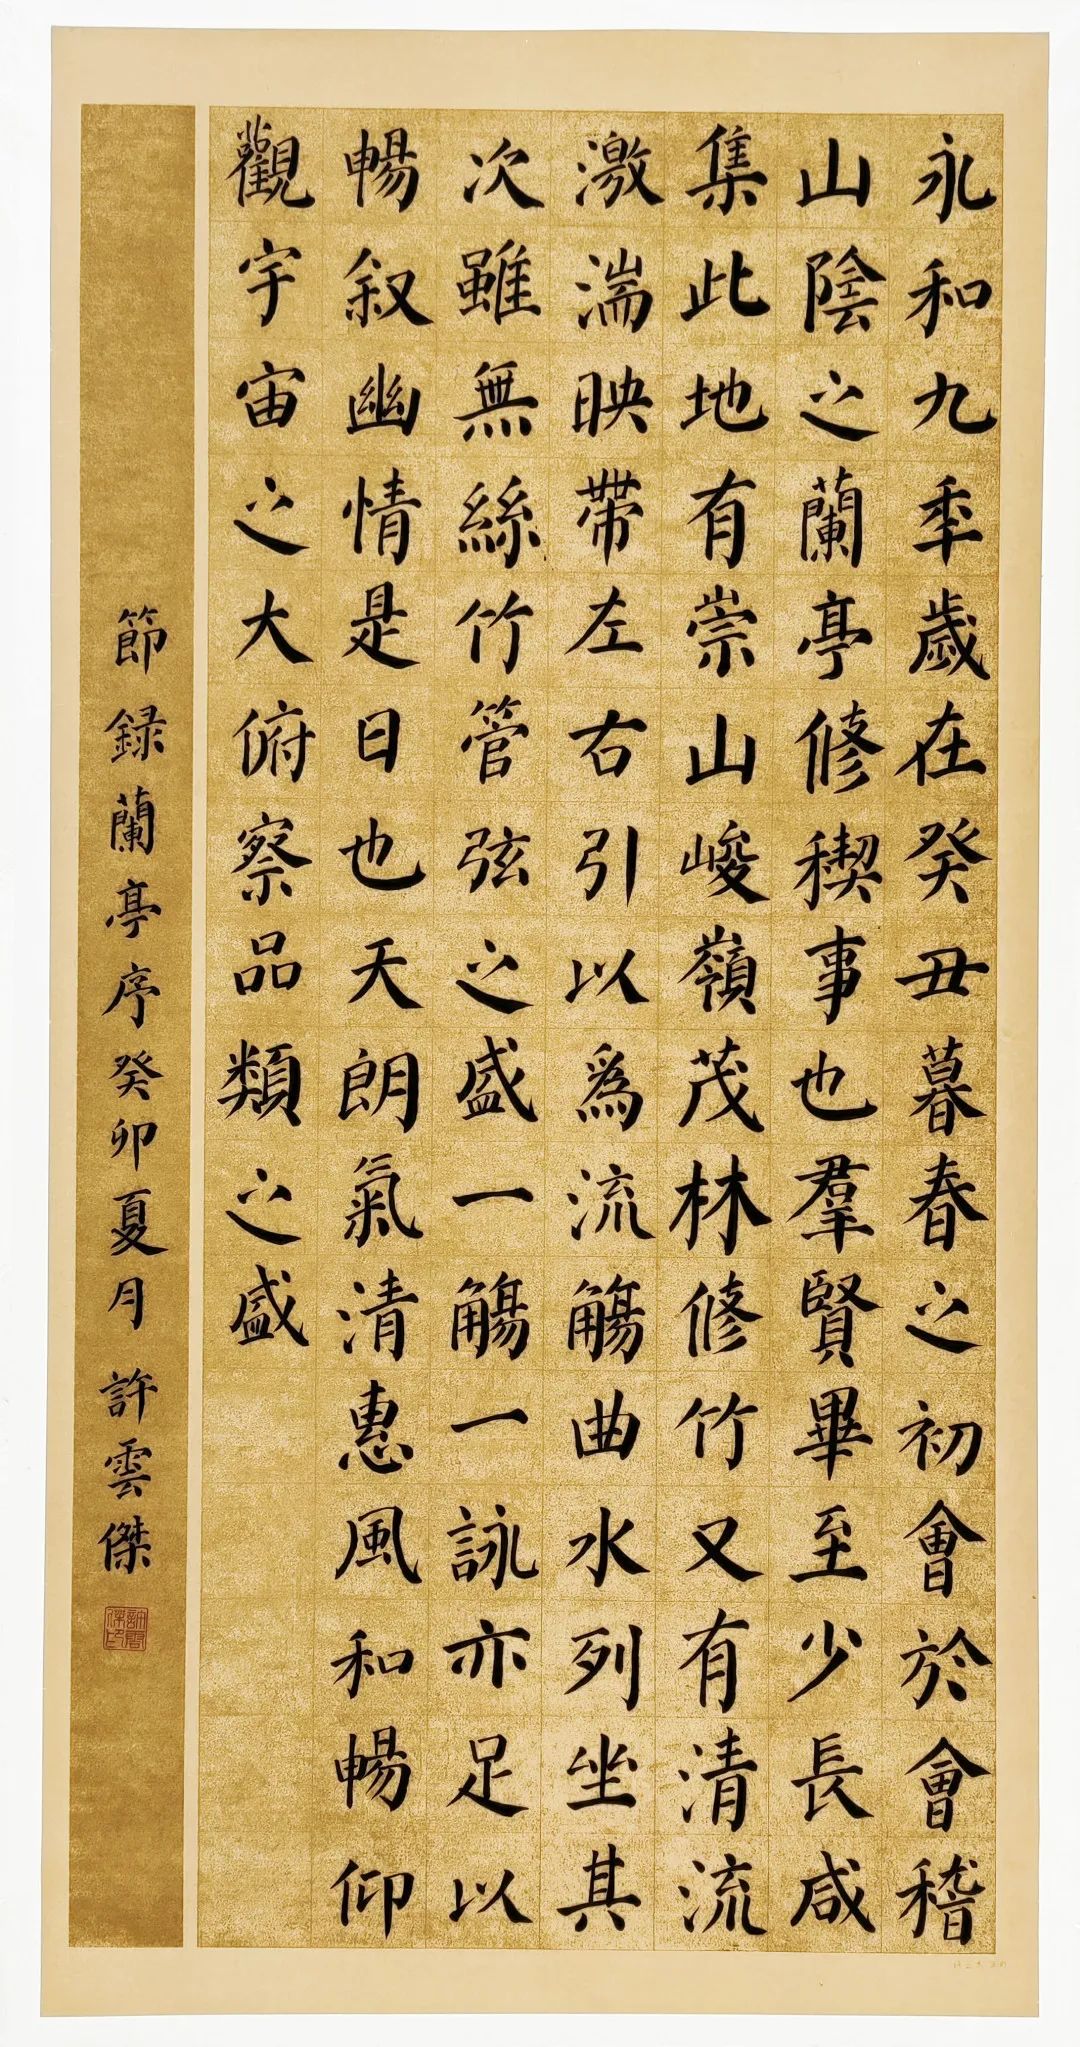 永和九秊歲在癸丑暮春之初會於會稽
山陰之蘭亭修稧事也羣賢畢至少長咸
集此地有崇山峻嶺茂林修竹又有清流
激湍映帶左右引以為流觴曲水列坐其
次雖無絲竹管弦之盛一觴一詠亦足以
暢叙幽情是日也天朗氣清惠風和暢仰
觀宇宙之大俯察品類之盛
節録蘭亭序癸卯夏月許雲傑